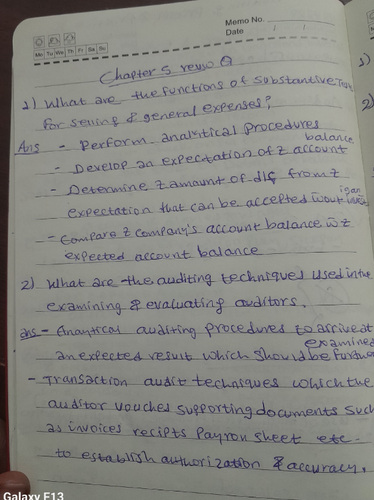 Memo No.
Date / /
Mo Tu We Th Fr Sa Su
Chapter 5 review Q
1) What are the functions of substantive Test
for selling & general expenses?
Ans - Perform analytical procedures
- Develop an expectation of z account balance
- Determine z amount of d/c from z
expectation that can be accepted wout
- Compare z company's account balance w z
expected account balance
2) What are the auditing techniques used in the
examining & evaluating auditors.
ans - Analytical auditing procedures to arrive at
an expected result which should be further examined
- Transaction audit techniques which the
auditor vouches supporting documents such
as invoices recipts Payroll sheet etc.
to establish authorization & accuracy.
1)
2)
Galaxy F13